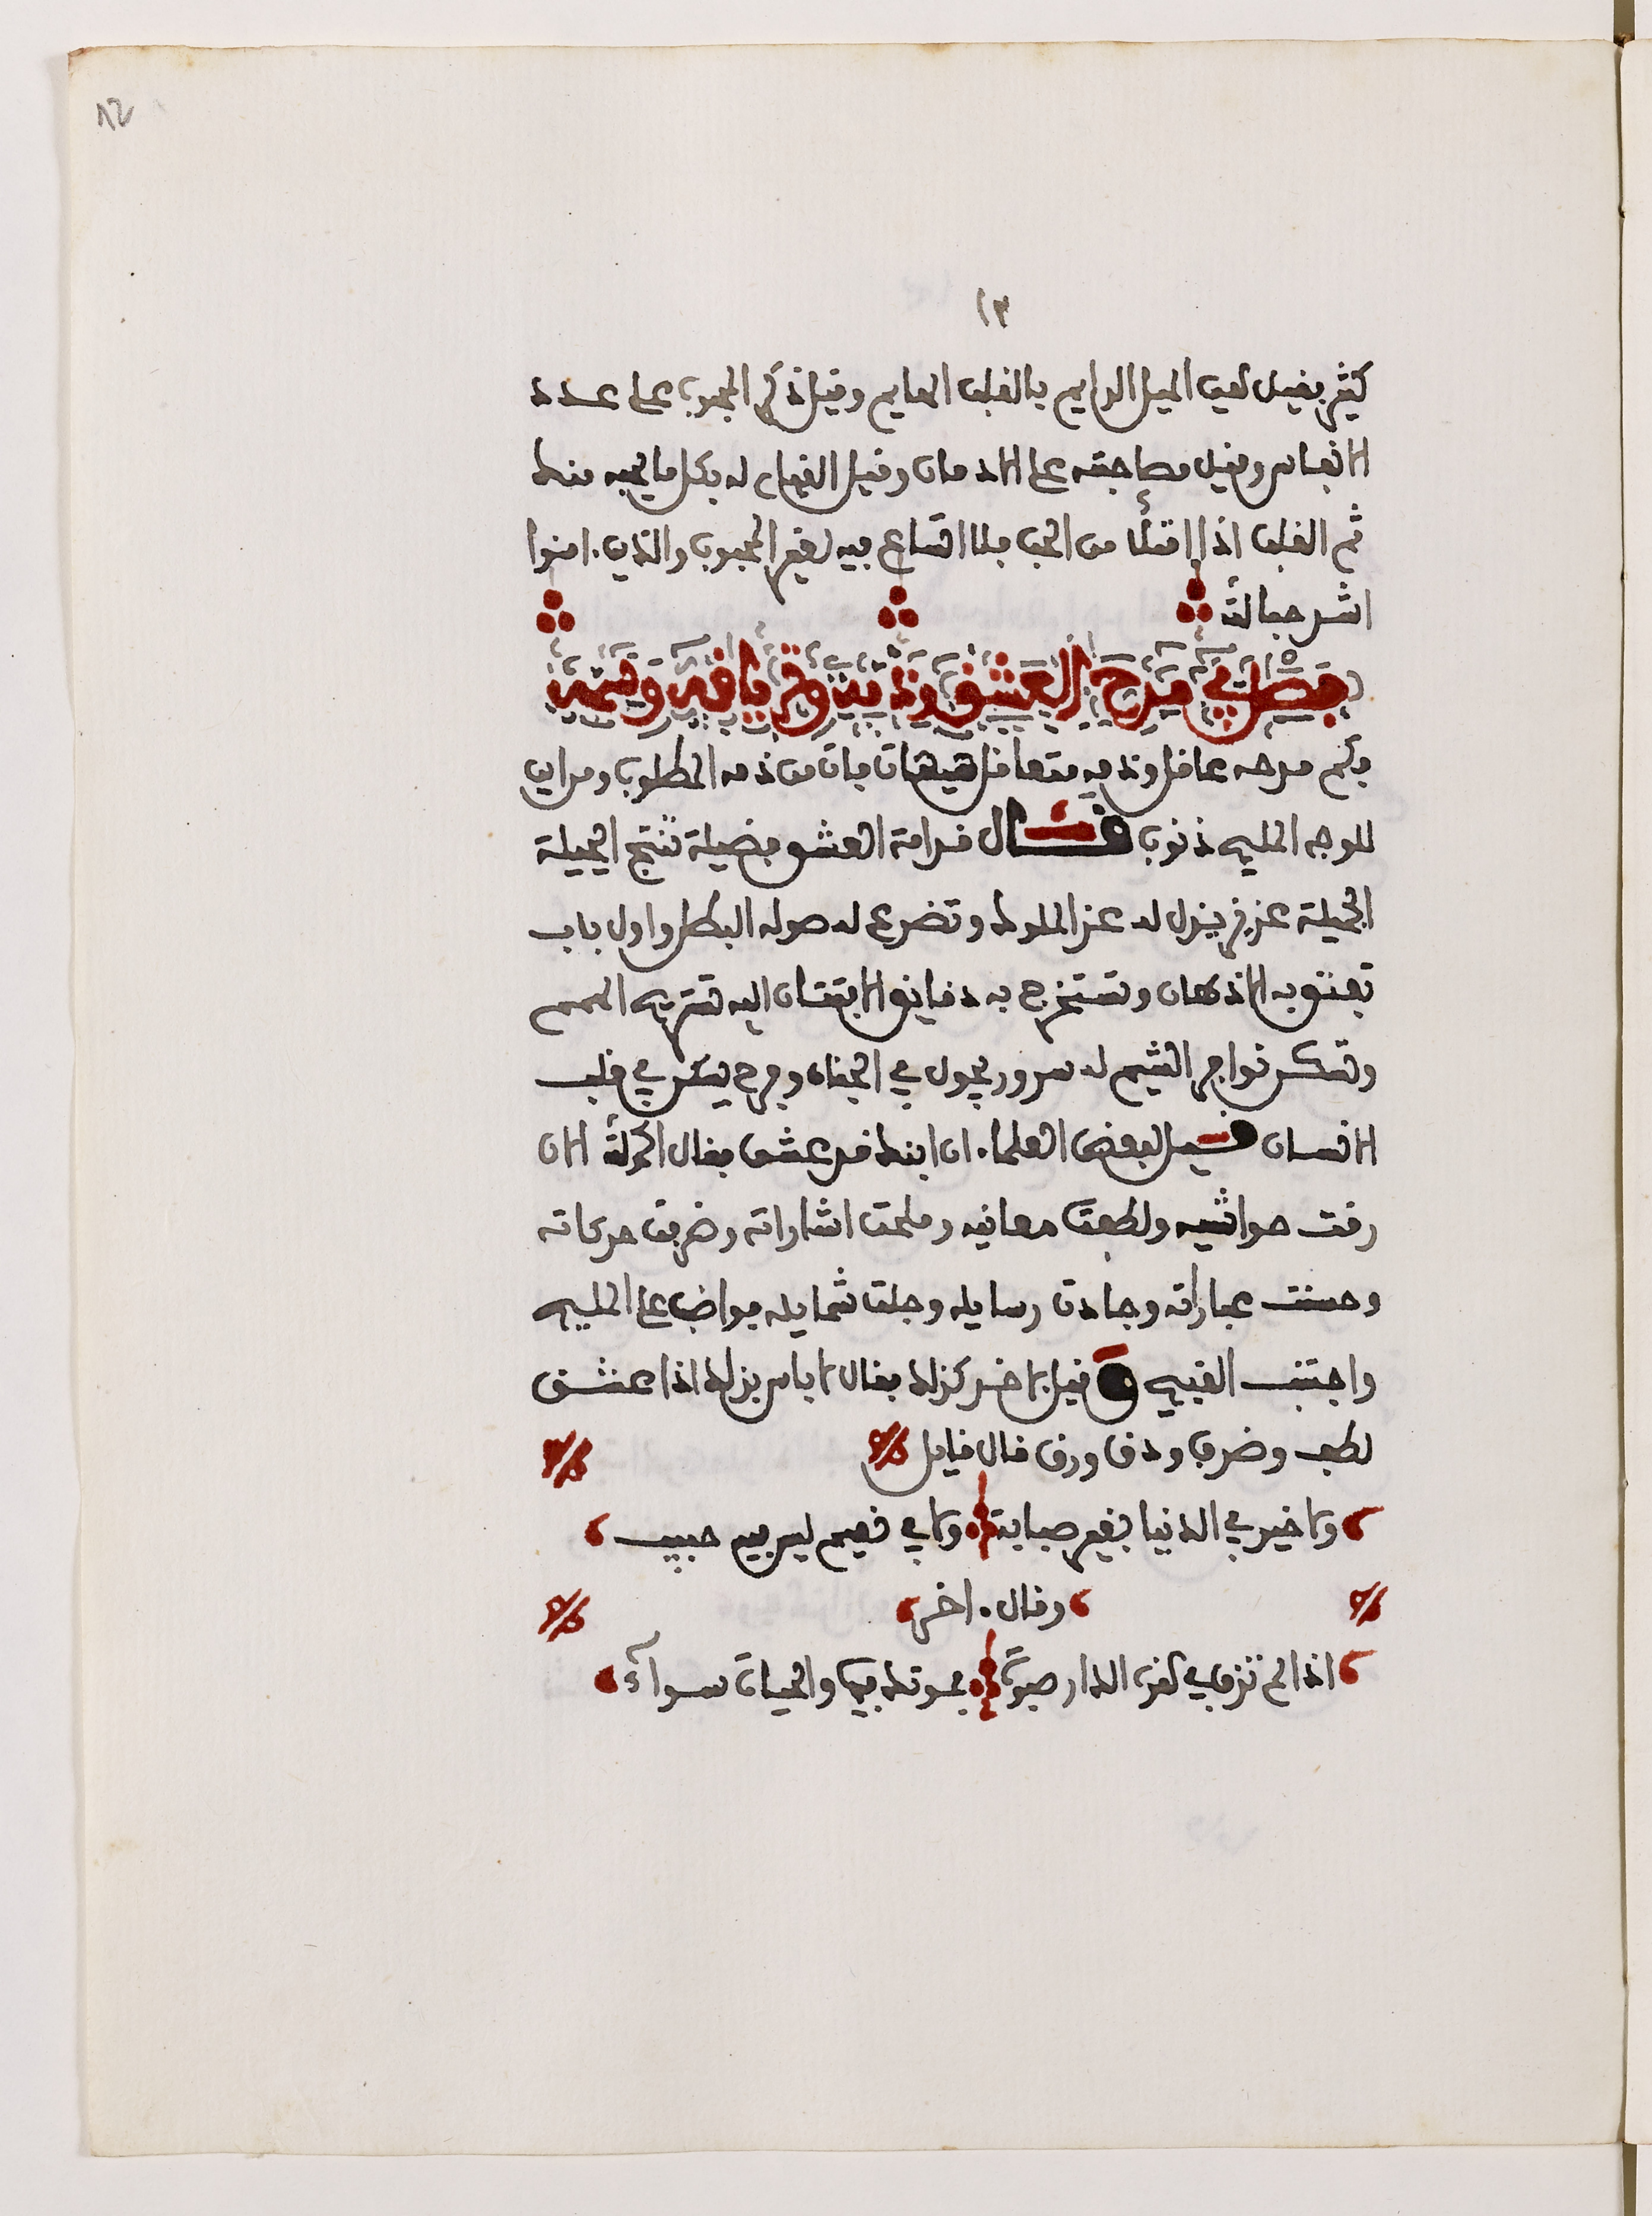 ١٢
١٣
كثير فقيل الحب الميل الدايم بالقلب الهايم وقيل ذكر المحبوب على عدد
الانفاس وقيل مصاحبته على الادمان وقيل القيام له بكل ما يحبه منك
ثم القلب اذا امتلأ من الحب فلا اتساع فيه لغير المحبوب والذين ءامنوا
اشد حبا لله
فصل في مدح العشق وذمه وترياقه وسمه
فكم مدحه عاقل وذمه متعاقل هيهات فات من ذمه المطلوب ومن اين
للوجه المليح ذنوب قال قدامة العشق فضيلة تنتج الحيلة
الجميلة عزيز يذل له عز الملوك وتضرع له صولة البطل واول باب
تفتق به الاذهان وتستخرج به دقايق الافتنان اليه تستريح الهمم
وتسكن نواجر الشيم له سرور يجول في الجنان وفرح يسكن في قلب
الانسان قيل لبعض العلماء ان ابنك قد عشق فقال الحمد لله الان
رقت حواشيه ولطفت معانيه وملحت اشاراته وظرفت حركاته
وحسنت عباراته وجادت رسايله وجلت شمايله فواضب على المليح
واجتنب القبيح وقيل لاخر كذلك فقال لا باس بذلك اذا عشق
لطف وظرف ودق ورق قال قايل
ولا خير في الدنيا بغير صبابة ولا في نعيم ليس فيه حبيب
وقال ءاخر
اذا لم تذق في هذه الدار صبوة فموتك فيها والحيات سوآء